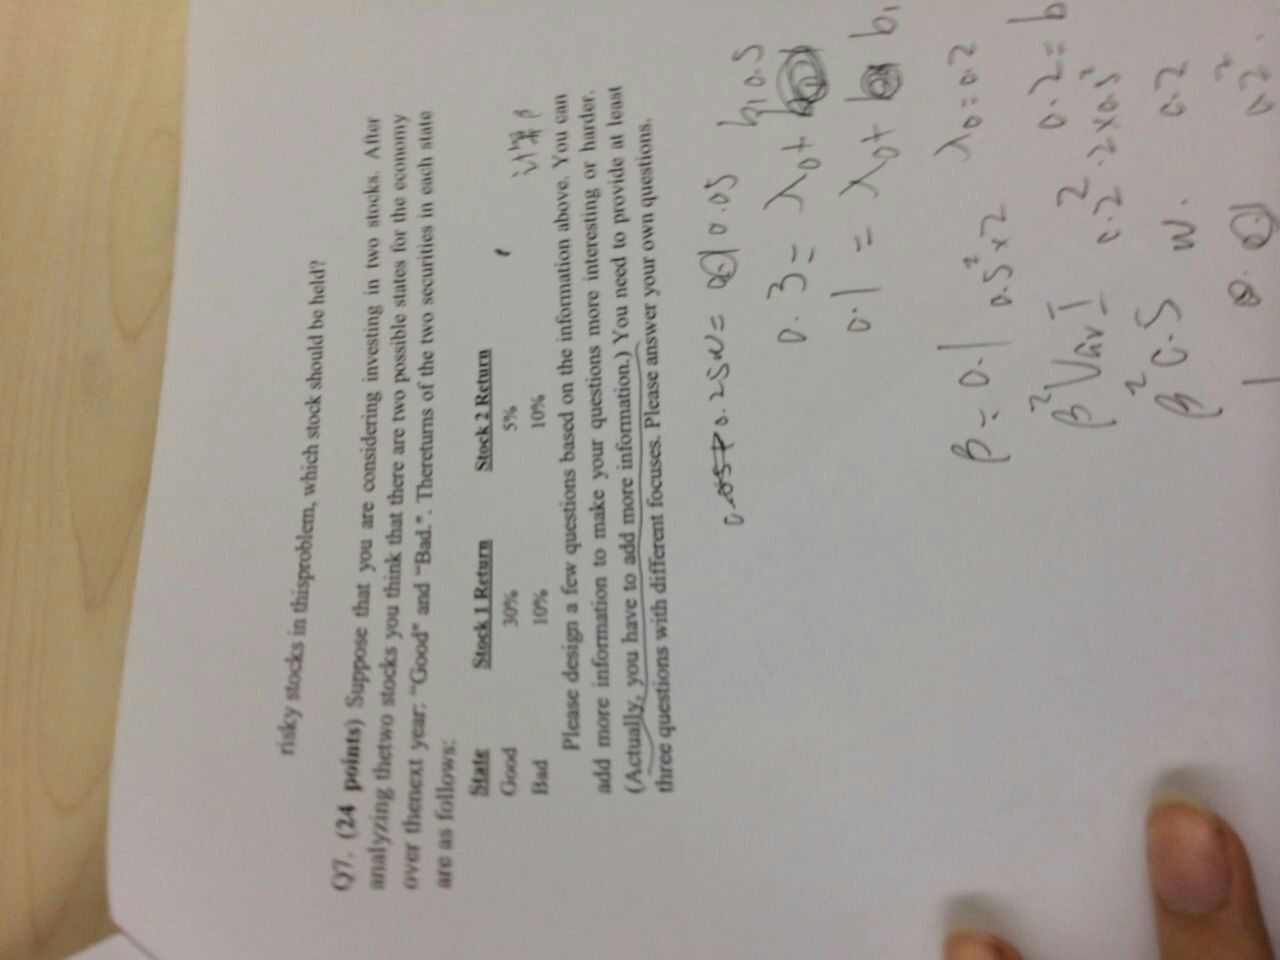 risky stocks in thisproblem, which stock should be held?
Q7. (24 points) Suppose that you are considering investing in two stocks. After
analyzing thetwo stocks you think that there are two possible states for the economy
over thenext year: "Good" and "Bad.". Thereturns of the two securities in each state
are as follows:
State Stock 1 Return Stock 2 Return
Good 30% 5%
Bad 10% 10%
计算β
Please design a few questions based on the information above. You can
add more information to make your questions more interesting or harder.
(Actually, you have to add more information.) You need to provide at least
three questions with different focuses. Please answer your own questions.
0.25w= 0.05
b₁0.5
0.3= λ₀+
0.1 = λ₀+ b₁
β=0.1 0.5²×2 λ₀=0.2
0.2=b
β²Var I 0.2²·2×0.5²
β²0.5 w. 0.2
0.2²